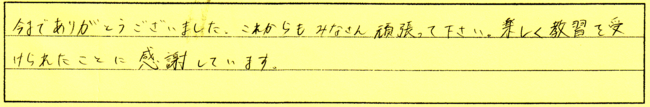 今までありがとうございました。これからもみなさん頑張って下さい。楽しく教習を受
けられたことに感謝しています。